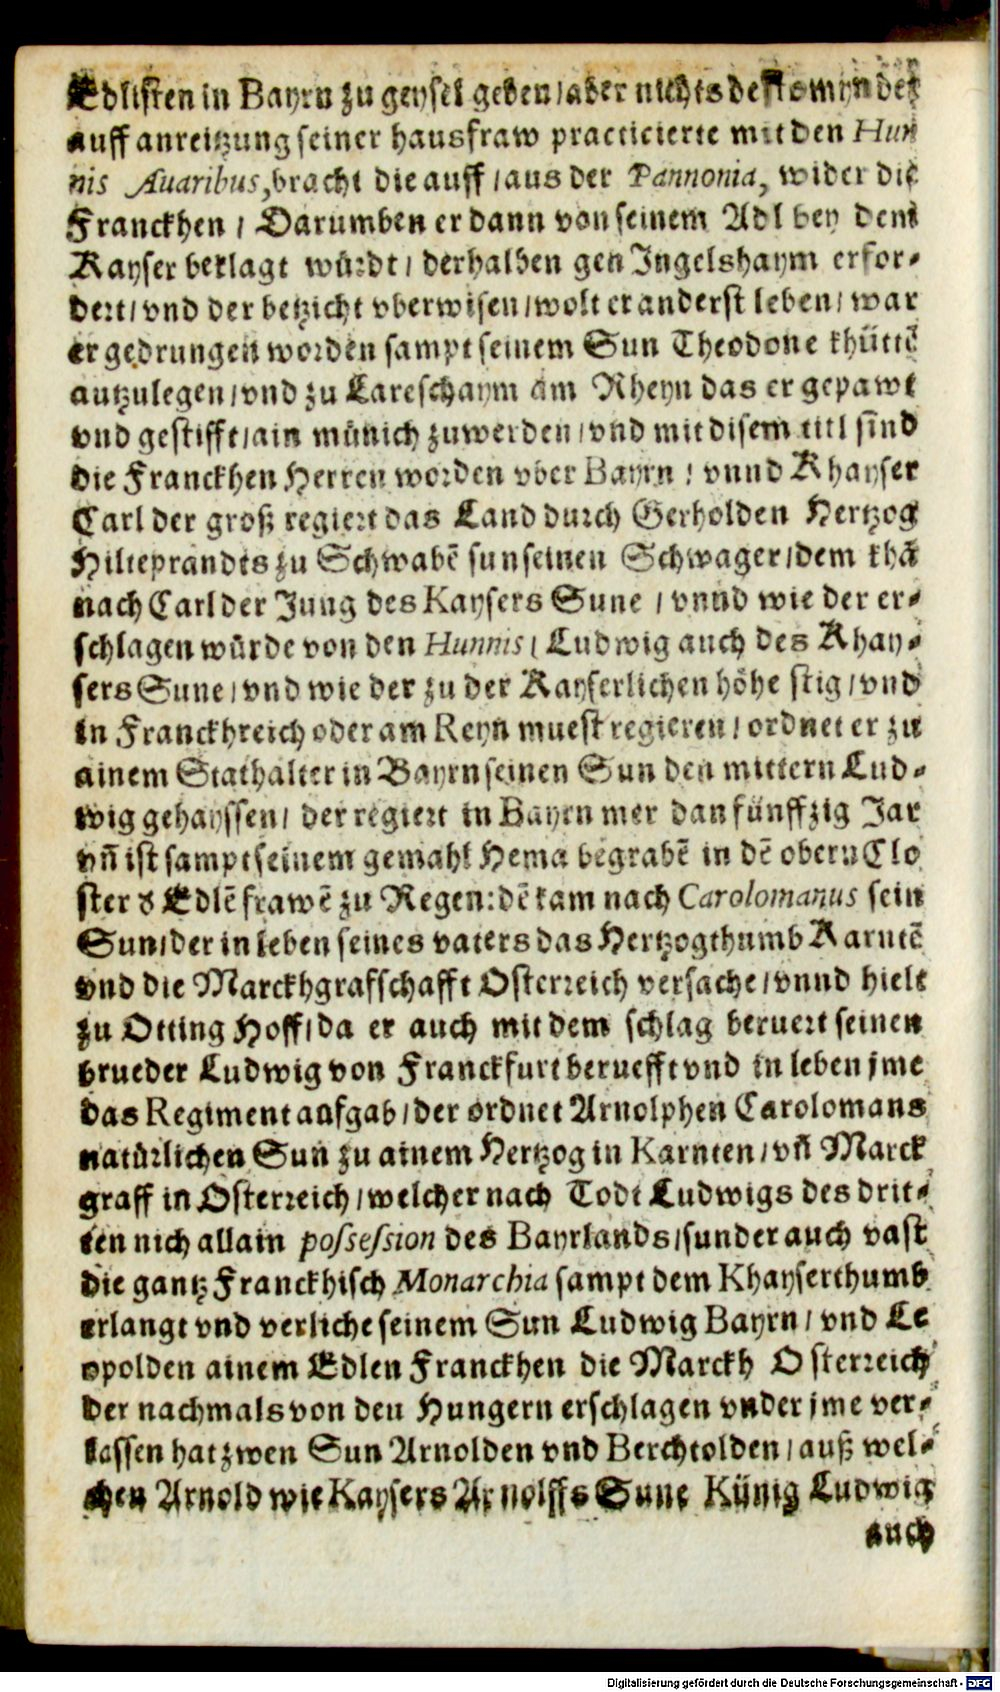 Edlisten in Bayrn zu geysel geben / aber nichts destomynder
auff anreitzung seiner hausfraw practicierte mit den Hun
nis Auaribus, bracht die auff / aus der Pannonia, wider die
Franckhen / Darumben er dann von seinem Adl bey dem
Kayser beklagt würdt / derhalben gen Ingelshaym erfor-
dert / vnd der betzicht vberwisen / wolt er anderst leben / war
er gedrungen worden sampt seinem Sun Theodone khüttē
autzulegen / vnd zu Lareschaym am Rheyn das er gepawt
vnd gestifft / ain münich zuwerden / vnd mit disem titl sind
die Franckhen Herren worden vber Bayrn / vnnd Khayser
Carl der groß regiert das Land durch Gerholden Hertzog
Hilteprandts zu Schwabē sun seinen Schwager / dem khā
nach Carl der Jung des Kaysers Sune / vnnd wie der er-
schlagen würde von den Hunnis / Ludwig auch des Khay-
sers Sune / vnd wie der zu der Kayserlichen höhe stig / vnd
in Franckhreich oder am Reyn muest regieren / ordnet er zu
ainem Stathalter in Bayrn seinen Sun den mittern Lud-
wig gehayssen / der regiert in Bayrn mer dan fünffzig Jar
vñ ist sampt seinem gemahl Hema begrabē in dē obern Clo
ster d Edlē frawē zu Regen: dē kam nach Carolomanus sein
Sun / der in leben seines vaters das Hertzogthumb Karntē
vnd die Marckhgrafschafft Osterreich versache / vnnd hielt
zu Otting Hoff / da er auch mit dem schlag beruert seinen
brueder Ludwig von Franckfurt beruefft vnd in leben jme
das Regiment aufgab / der ordnet Arnolphen Carolomans
natürlichen Sun zu ainem Hertzog in Karnten / vñ Marck
graff in Osterreich / welcher nach Todt Ludwigs des drit-
ten nich allain possession des Bayrlands / sunder auch vast
die gantz Franckhisch Monarchia sampt dem Khayserthumb
erlangt vnd verliche seinem Sun Ludwig Bayrn / vnd Le
opolden ainem Edlen Franckhen die Marckh Osterreich
der nachmals von den Hungern erschlagen vnder jme ver-
lassen hat zwen Sun Arnolden vnd Berchtolden / auß wel-
chen Arnold wie Kaysers Arnolffs Sune Künig Ludwig
auch
Digitalisierung gefördert durch die Deutsche Forschungsgemeinschaft - DFG